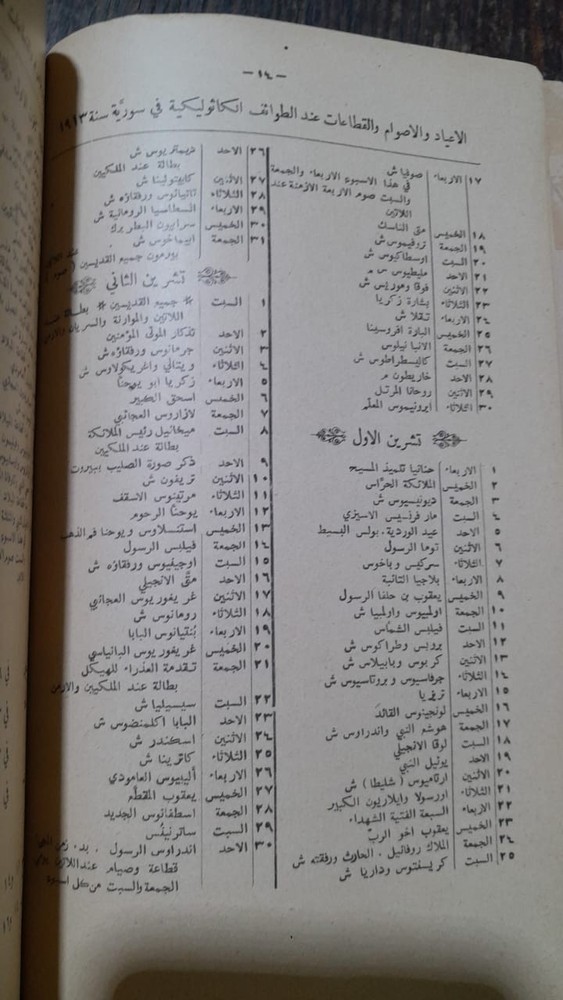 — ١٤ —
الاعياد والاصوام والقطاعات عند الطوائف الكاثوليكية في سوريَّة سنة ١٩١٣
١٧ الاربعاء صوفيا ش
في هذا الاسبوع الاربعاء والجمعة
والسبت صوم الاربعة الازمنة عند
اللاتين
١٨ الخميس متى الناسك
١٩ الجمعة تروفيموس ش
٢٠ السبت اوسطاكيوس ش
٢١ الاحد مليطيوس س م
٢٢ الاثنين فوقا وموريس ش
٢٣ الثلاثاء بشارة زكريا
٢٤ الاربعاء تقلا ش
٢٥ الخميس البارة افروسينا
٢٦ الجمعة الانبا نيلوس
٢٧ السبت كاليسطراطوس ش
٢٨ الاحد خاريطون م
٢٩ الاثنين روحانا المرتل
٣٠ الثلاثاء ايرونيموس المعلم
تشرين الاول
١ الاربعاء حنانيا تلميذ المسيح
٢ الخميس الملائكة الحرَّاس
٣ الجمعة ديونيسيوس ش
٤ السبت مار فرنسيس الاسيزي
٥ الاحد عيد الوردية . بولس البسيط
٦ الاثنين توما الرسول
٧ الثلاثاء سركيس وباخوس
٨ الاربعاء بلاجيا التائبة
٩ الخميس يعقوب بن حلفا الرسول
١٠ الجمعة اولمبيوس واولمبيا ش
١١ السبت فيلبس الشمَّاس
١٢ الاحد بروبس وطراكوس ش
١٣ الاثنين كربوس وبابيلاس ش
١٤ الثلاثاء جرفاسيوس وبروتاسيوس ش
١٥ الاربعاء تريزيا
١٦ الخميس لونجينوس القائد
١٧ الجمعة هوشع النبي واندراوس ش
١٨ السبت لوقا الانجيلي
١٩ الاحد يوئيل النبي
٢٠ الاثنين ارتاميوس ( شليطا ) ش
٢١ الثلاثاء اورسولا وايلاريون الكبير
٢٢ الاربعاء السبعة الفتية الشهداء
٢٣ الخميس يعقوب اخو الربّ
٢٤ الجمعة الملاك روفائيل . الحارث ورفقته ش
٢٥ السبت كريسنتوس وداريا ش
٢٦ الاحد ديمتريوس ش
بطالة عند الملكيين
٢٧ الاثنين كابيتولينا ش
٢٨ الثلاثاء تاتيانوس ورفقاؤه ش
٢٩ الاربعاء انسطاسيا الرومانية ش
٣٠ الخميس سرابيون البطريرك
٣١ الجمعة ابيماخوس ش
بورمون جميع القديسين ( صوم )
تشرين الثاني
١ السبت * جميع القديسين * بطالة عند
اللاتين والموارنة والسريان والارمن
٢ الاحد تذكار الموتى المؤمنين
٣ الاثنين جرمانوس ورفقاؤه ش
٤ الثلاثاء ويتالي واغريكولاوس ش
٥ الاربعاء زكريا ابو يوحنَّا
٦ الخميس اسحق الكبير
٧ الجمعة لازاروس العجائبي
٨ السبت ميخائيل رئيس الملائكة
بطالة عند الملكيين
٩ الاحد ذكر صورة الصليب ببيروت
١٠ الاثنين تريفون ش
١١ الثلاثاء مرتينوس الاسقف
١٢ الاربعاء يوحنَّا الرحوم
١٣ الخميس استنسلاوس ويوحنا فم الذهب
١٤ الجمعة فيلبس الرسول
١٥ السبت اوجيفيوس ورفقاؤه ش
١٦ الاحد متَّى الانجيلي
١٧ الاثنين غريغوريوس العجائبي
١٨ الثلاثاء رومانوس ش
١٩ الاربعاء بُنتيانوس البابا
٢٠ الخميس غريغوريوس البانياسي
٢١ الجمعة تقدمة العذراء للهيكل
بطالة عند الملكيين والارمن
٢٢ السبت سيسيليا ش
٢٣ الاحد البابا اكلمنضوس ش
٢٤ الاثنين اسكندر ش
٢٥ الثلاثاء كاترينا ش
٢٦ الاربعاء أليبيوس العامودي
٢٧ الخميس يعقوب المقطَّع
٢٨ الجمعة اسطفانوس الجديد
٢٩ السبت ساترنينُس
٣٠ الاحد اندراوس الرسول . بدء زمن
قطاعة وصيام عند اللاتين
الجمعة والسبت من كل اسبوع